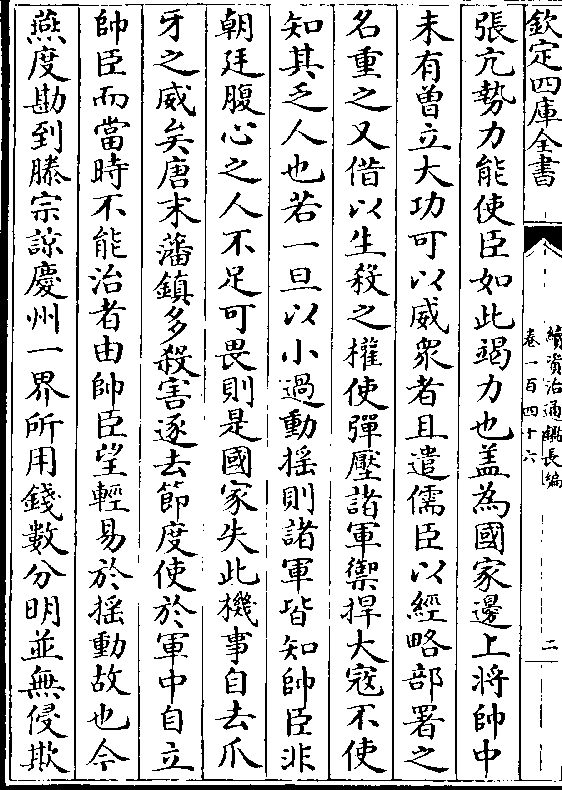 欽定四庫全書
續資治通鑑長編
卷一百四十六
二
張亢勢力能使臣如此竭力也盖為國家邊上將帥中
未有曾立大功可以威衆者且遣儒臣以經略部署之
名重之又借以生殺之權使彈壓諸軍禦捍大寇不使
知其乏人也若一旦以小過動揺則諸軍皆知帥臣非
朝廷腹心之人不足可畏則是國家失此機事自去爪
牙之威矣唐末藩鎮多殺害逐去節度使於軍中自立
帥臣而當時不能治者由帥臣望輕易於揺動故也今
燕度勘到滕宗諒慶州一界所用錢數分明並無侵欺